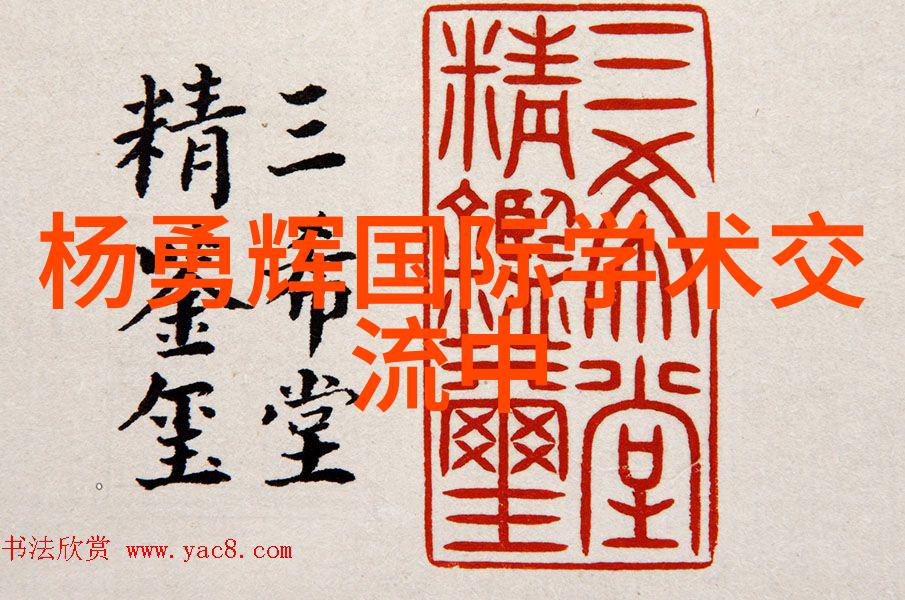 三希堂
精鉴玺
三希堂
精鑑璽
杨勇辉国际学术交
流中
书法欣赏 www.yac8.com